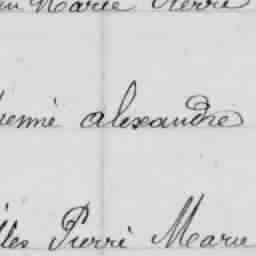 Marie Pierre
ienné alexandre
lles Pierré Marie